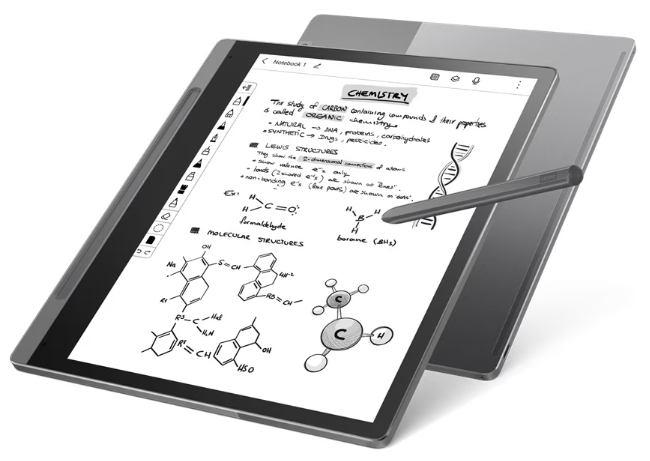 Notebook 1
CHEMISTRY
The study of CARBON containing compounds & their properties
is called ORGANIC chemistry
• NATURAL → DNA, proteins, carbohydrates
• SYNTHETIC → Drugs, pesticides.
LEWIS STRUCTURES
They show the 2-dimensional connections of atoms
• Show valence e⁻s only
• bonds (shared e⁻s) are shown as "lines".
• non-bonding e⁻s (lone pairs) are shown as "dots".
Ex:
H
H
C=O
formaldehyde
H
B
H
H
borane (BH₃)
MOLECULAR STRUCTURES
OH
Na
S=CH
R1
R3
C
H₂N
R1=CH
OH
H50
C
C
H